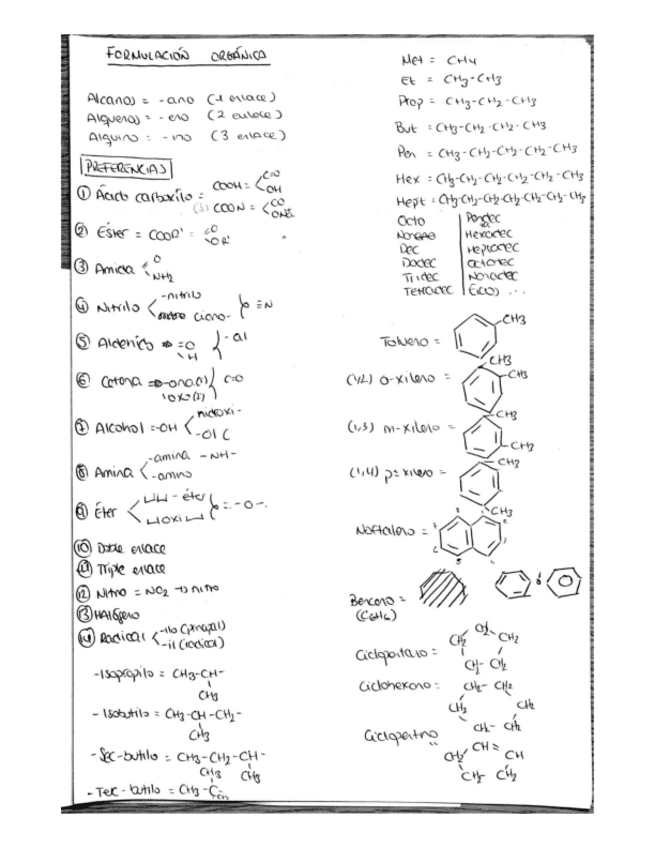 FORMULACIÓN ORGÁNICA
Alcanos = -ano (1 enlace)
Alquenos = -eno (2 enlace)
Alquino = -ino (3 enlace)
PREFERENCIAS
① Ácido carboxilo = COOH = CO OH
(3) COON = CO
② Éster = COOR' = O OR'
③ Amida O NH2
④ Nitrilo -nitrilo ciano- ≡N
⑤ Aldehído =O H -al
⑥ Cetona -ona(1) oxo(2) C=O
⑦ Alcohol -OH hidroxi- -ol
⑧ Amina -amina -NH- -amino
⑨ Éter -éter oxi = -O-.
⑩ Doble enlace
⑪ Triple enlace
⑫ Nitro = NO2 → nitro
⑬ HAlógeno
⑭ Radical -ilo (principal) -il (radical)
-Isopropilo = CH3-CH-
CH3
-Isobutilo = CH3-CH-CH2-
CH3
-Sec-butilo = CH3-CH2-CH-
CH3 CH3
-Terc-butilo = CH3-C
Met = CH4
Et = CH3-CH3
Prop = CH3-CH2-CH3
But = CH3-CH2-CH2-CH3
Pen = CH3-CH2-CH2-CH2-CH3
Hex = CH3-CH2-CH2-CH2-CH2-CH3
Hept = CH3-CH2-CH2-CH2-CH2-CH2-CH3
Octo
Hexadec
Dec Heptadec
Dodec Octodec
Tridec Nonadec
Tetradec Eico) ...
Tolueno = -CH3
CH3
(1,2) o-xileno = -CH3
CH3
(1,3) m-xileno =
CH3
CH3
(1,4) p-xileno =
CH3
Naftaleno =
Benceno = ó
(C6H6)
Ciclopentano = CH2 CH2 CH2
CH2- CH2
Ciclohexano = CH2- CH2
CH2 CH2
CH2- CH2
CH = CH
CH2
CH2- CH2